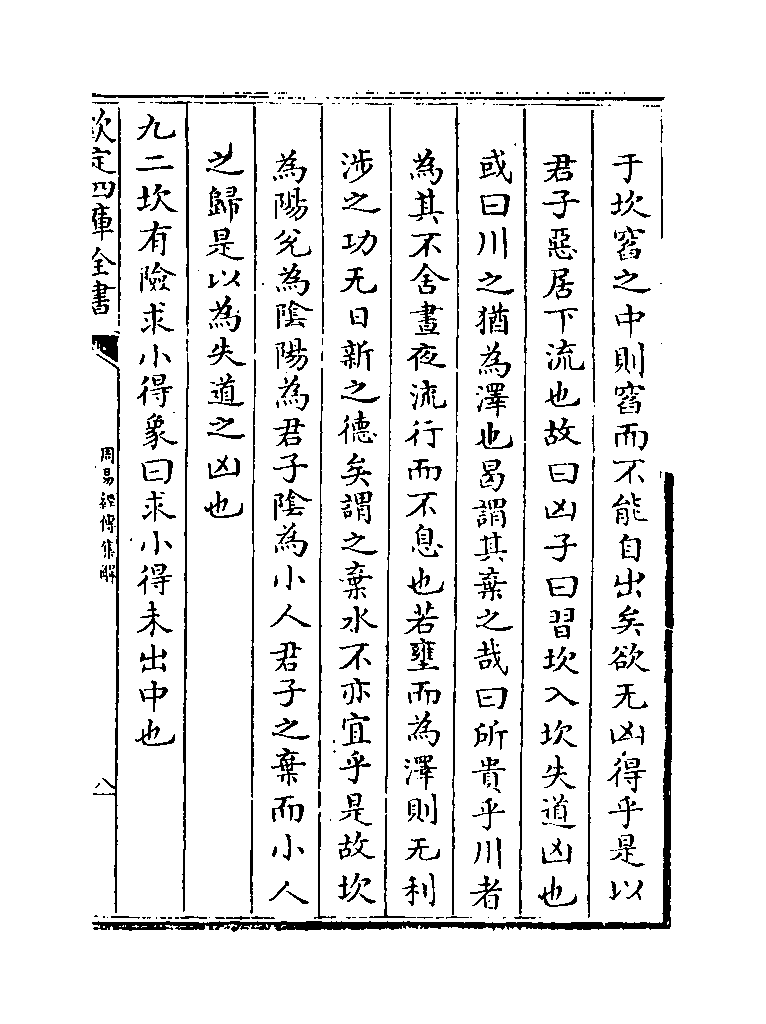 于坎窞之中則窞而不能自出矣欲无凶得乎是以
君子惡居下流也故曰凶子曰習坎入坎失道凶也
或曰川之猶為澤也曷謂其棄之哉曰所貴乎川者
為其不舍晝夜流行而不息也若壅而為澤則无利
涉之功无日新之德矣謂之棄水不亦宜乎是故坎
為陽兊為陰陽為君子陰為小人君子之棄而小人
之歸是以為失道之凶也
九二坎有險求小得象曰求小得未出中也
欽定四庫全書
周易經傳集解
八